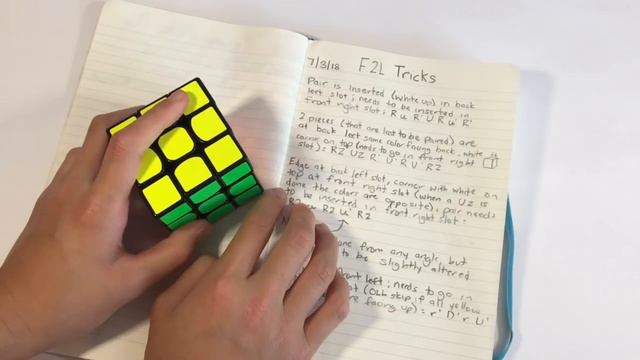 7/3/18 F2L Tricks
Pair is inserted (white up) in back
left slot; needs to be inserted in
front right slot: R U R' U R U' R'
2 pieces (that are last to be paired) are
at back left same color facing back, white is
corner on top (needs to go in front right
slot): R2 U2 R' U' R U' R2
Edge at back left slot, corner with white on
top at front right slot (when a U2 is
done the colors are opposite); pair needs
to be inserted in front right slot:
R2 U' R2
one from any angle, but
to be slightly altered
front left; needs to go in
(OLL skip if all yellow
are facing up) = r' D' r U'